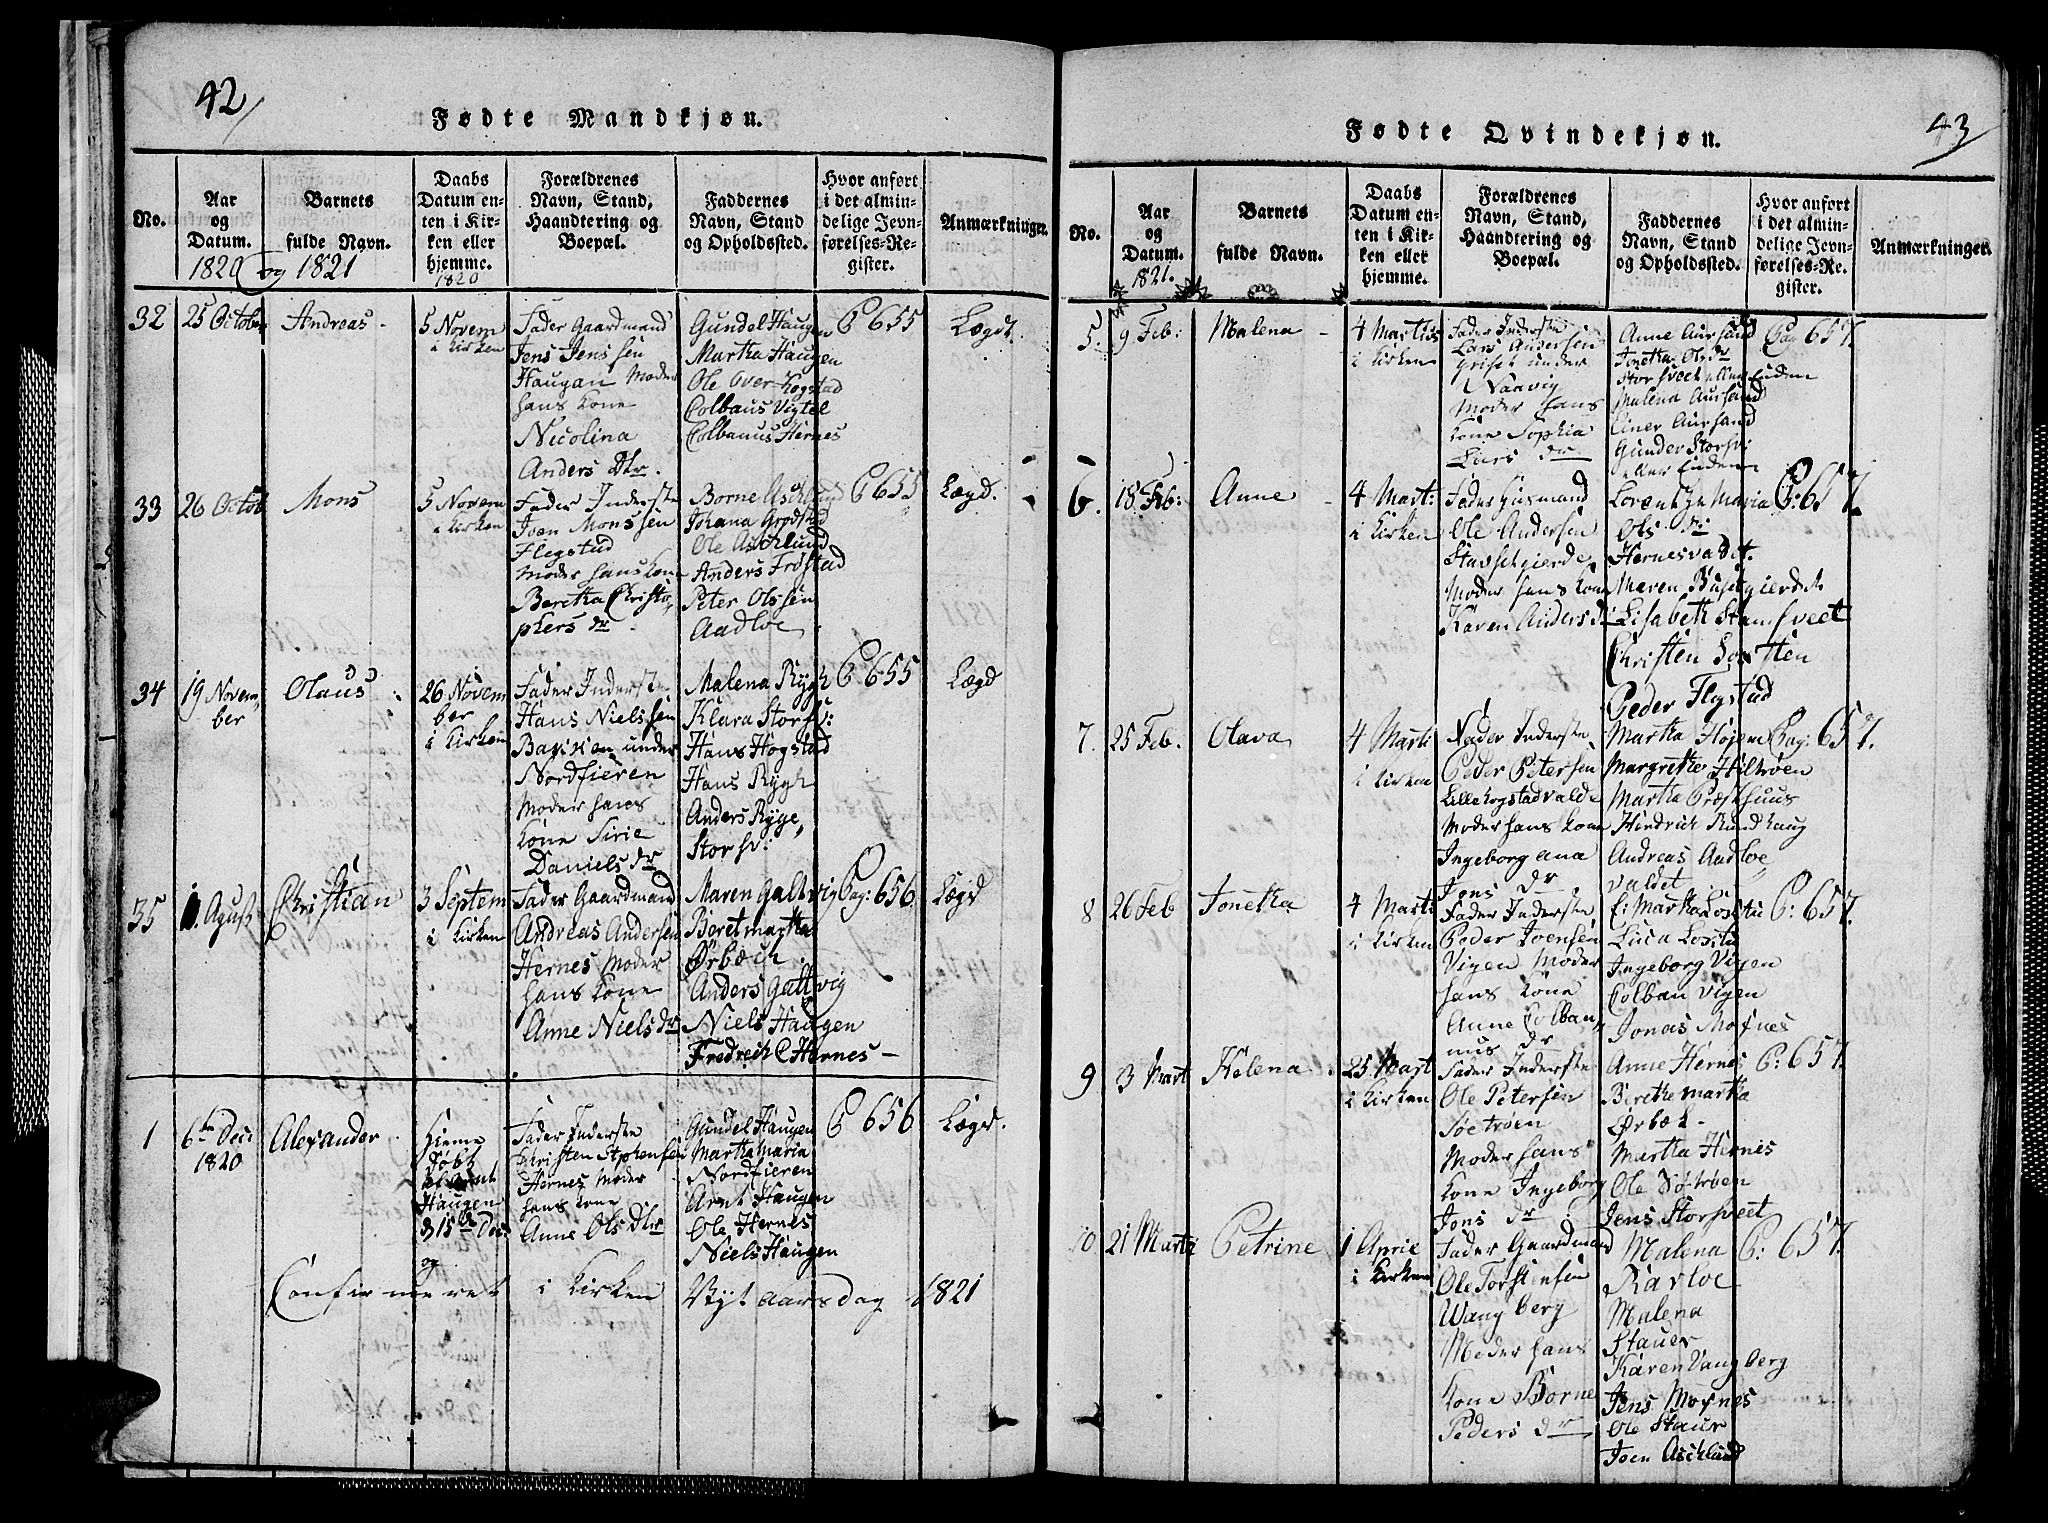 42/
Fødte Mandkjøn.
No.
Aar og Datum.
1820 og 1821
Barnets fulde Navn.
Daabs Datum enten i Kirken eller hjemme.
1820
Forældrenes Navn, Stand, Haandtering og Boepæl.
Faddernes Navn, Stand og Opholdssted.
Hvor anført i det almindelige Jevnførelses-Register.
Anmærkninger.
32
25 October
Andreas
5 Novem
i Kirken
Fader Gaardmand
Jens Jenssen
Haugan Moder
hans Kone
Nicolina
Anders Dtr.
Gundel Haugen
Martha Haugen
Ole Over Kogstad
Colbaus Vigtel
Colbanus Hernes
P 655
Lægd.
33
26 Octob
Mons
5 Novem
i Kirken
Fader Inderste
Joen Monssen
Flegstad
Moder hans Kone
Beretha Christo
phers dr
Borne Aschlund
Johana Grødstad
Ole Aschlund
Anders Frøstad
Peter Olssen
Aadloe
P 655
Lægd.
34
19 Novem
ber
Olaus
26 Novem
ber
i Kirken
Fader Inderste
Hans Nielssen
Bakken under
Nordfieren
Moder hans
Kone Sirie
Daniels dr
Malena Rygh
Klara Storsv:
Hans Hogstad
Hans Rygh
Anders Ryge,
Storsv:
P 655
Lægd
35
1. Agust
Christian
3 Septem
i Kirken
Fader Gaardmand
Andreas Andersen
Hernes Moder
hans Kone
Anne Niels dr
Maren Galtvig
Beret martha
Ørbæch
Anders Galtvig
Niels Haugen
Fredrich Hernes
Pag: 656
Lægd
1
6te Dec
1820
Alexander
Hieme
Døbt
af Arnt
Haugen
d 15de Dec:
og
Fader Inderste
Christen Stephensen
Hernes Moder
hans Kone
Anne Ols Dtr
Gundel Haugen
Martha Maria
Nordfieren
Arnt Haugen
Ole Hernes
Niels Haugen
P 656
Lægd.
Confirmeret i Kirken Nyt aarsdag 1821
43
Fødte Qvindekjøn.
No.
Aar og Datum.
1821.
Barnets fulde Navn.
Daabs Datum enten i Kirken eller hjemme.
Forældrenes Navn, Stand, Haandtering og Boepæl.
Faddernes Navn, Stand og Opholdssted.
Hvor anført i det almindelige Jevnførelses-Register.
Anmærkninger.
5.
9 Feb:
Malena
4 Martius
i Kirken
Fader Inderste
Lars Andersen
Griset under
Naavig
Moder hans
Kone Sophia
Lars dr
Anne Aursand
Jonetha Ols dr
Storsveet eller Enden
Malena Aursand
Einer Aursand
Gunder Storsv:
eller Enden
Pag 657.
6.
18 Feb:
Anne
4 Mart:
i Kirken
Fader Husmand
Ole Andersen
Stavsetgierde
Moder hans Kone
Karen Anders d
Lorentzn Maria
Ols dr
Hernesvaldet.
Maren Busetgierdet
Lisabeth Stamsveet
Christen Sorsten
Peder Flegstad
P: 657.
7.
25 Feb.
Olava
4 Marti
i Kirken
Fader Inderste
Peder Petersen
Lille Kogstadvalde
Moder hans Kone
Ingeborg ana
Jons dr
Martha Højem
Margrethe Hiltrøen
Martha Præsthuus
Hindrich Rundhaug
Andreas Aadloe
valdet
Pag. 657.
8
26 Feb
Jonetha
4 Marti
i Kirken
Fader Inderste
Peder Joensen
Vigen Moder
hans Kone
Anne Colban
nus dr
Martha Lositu
Luca Losite
Ingeborg Vigen
Colban Vigen
Jonas Moxnes
P: 657.
9
3 Mart
Helena
25 Mart
i Kirken
Fader Inderste
Ole Petersen
Søetrøen
Moder hans
Kone Ingeborg
Jons dr
Anne Hernes
Berethe martha
Ørbæk
Martha Hernes
Ole Søtrøen
Jens Storsveet
P: 657.
10
21 Marti
Petrine
1 Aprie
i Kirken
Fader Gaardmand
Ole Torstensen
Wangberg
Moder hans
Kone Borne
Peders dr
Malena
Ravloe
Malena
Stauer
Karen Vangberg
Jens Moxnes
Ole Staur
Joen Aschlund
P: 657.